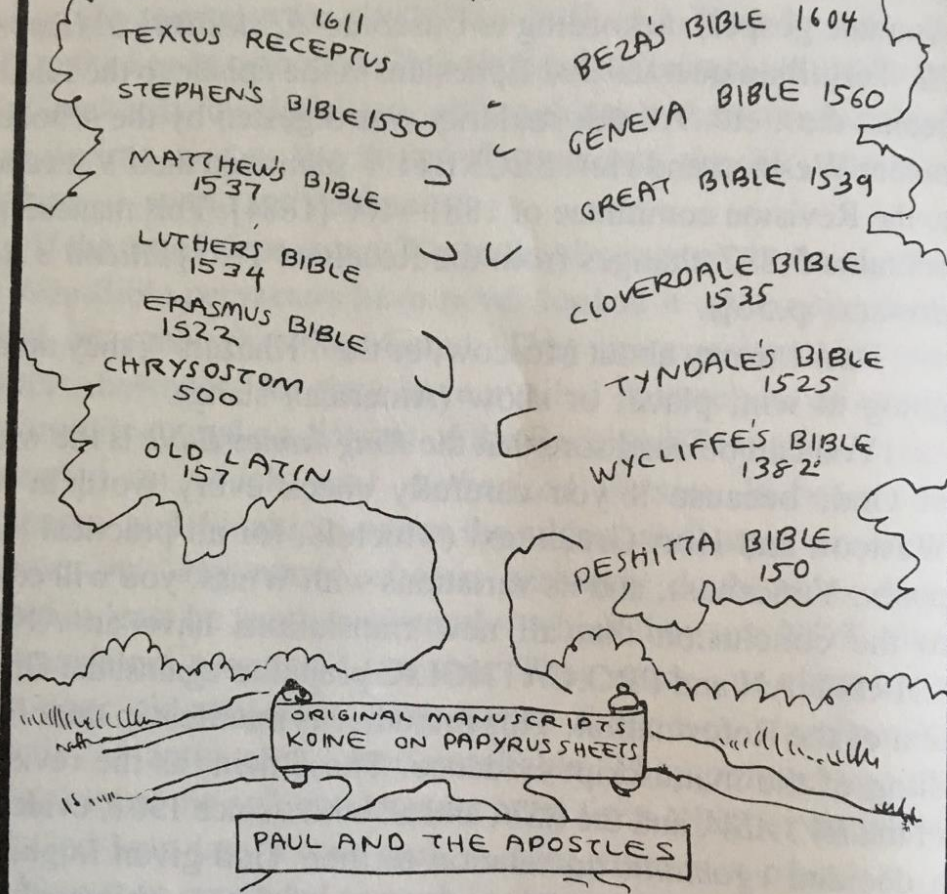 1611
TEXTUS RECEPTUS
STEPHEN'S BIBLE 1550
MATTHEW'S BIBLE
1537
LUTHER'S BIBLE
1534
ERASMUS BIBLE
1522
CHRYSOSTOM
500
OLD LATIN
157
BEZA'S BIBLE 1604
GENEVA BIBLE 1560
GREAT BIBLE 1539
CLOVERDALE BIBLE
1535
TYNDALE'S BIBLE
1525
WYCLIFFE'S BIBLE
1382
PESHITTA BIBLE
150
ORIGINAL MANUSCRIPTS
KOINE ON PAPYRUS SHEETS
PAUL AND THE APOSTLES